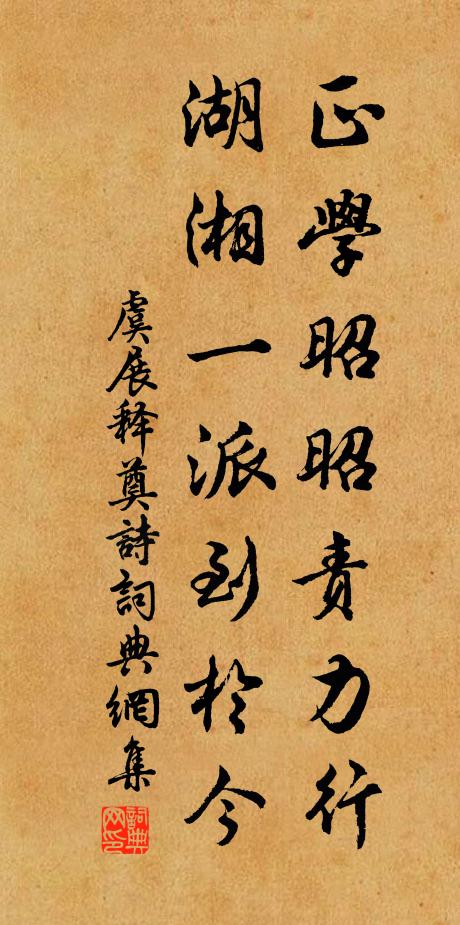 正學昭昭責力行
湖湘一派到於今
虞展释奠詩詞典網集
詞典网印